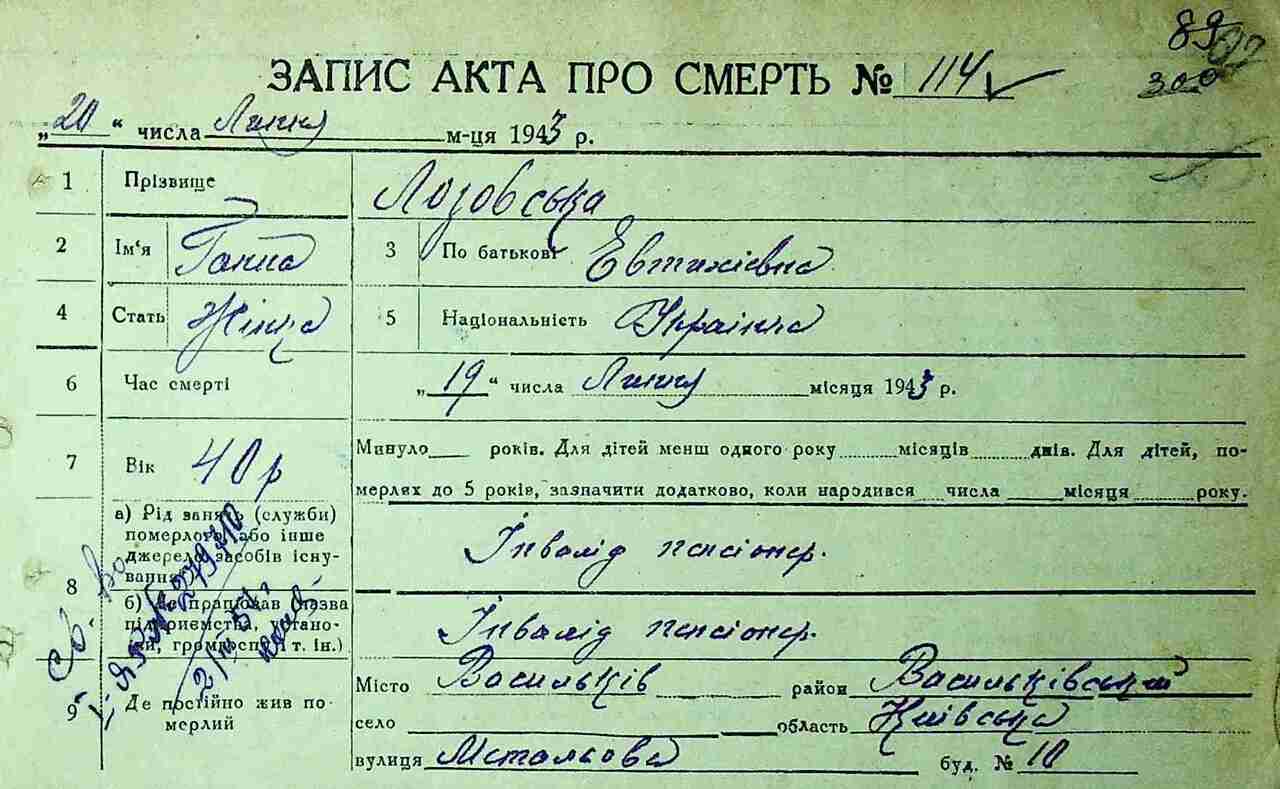 89
300
ЗАПИС АКТА ПРО СМЕРТЬ № 114
„20“ числа Липня м-ця 1943 р.
1 Прізвище Лозовська
2 Ім'я Ганна 3 По батькові Евтихієвна
4 Стать Жінка 5 Національність Українка
6 Час смерті „19“ числа Липня місяця 1943 р.
7 Вік 40 р Минуло років. Для дітей менш одного року місяців днів. Для дітей, по-
мерлих до 5 років, зазначити додатково, коли народився числа місяця року.
8 а) Рід занять (служби) померлого, або інше джерело засобів існування Інвалід пенсіонер.
б) Де працював (назва підприємства, установи, громгосп. і т. ін.) Інвалід пенсіонер.
9 Де постійно жив померлий
Місто Васильків район Васильківський
село область Київська
вулиця буд. № 10
Св. во